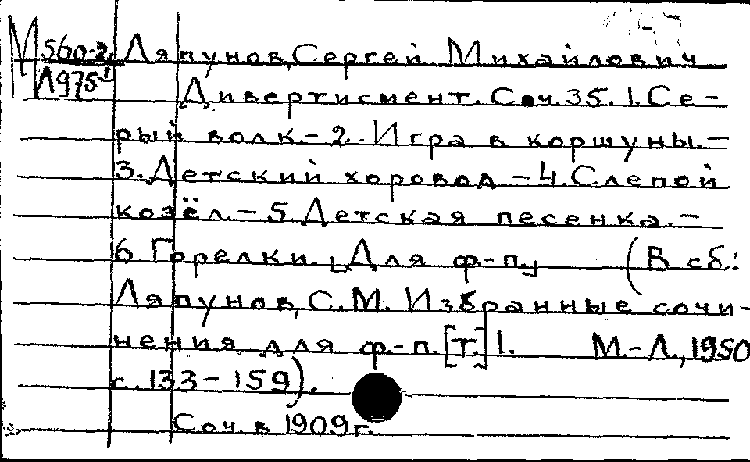 М 560-2 Ляпунов, Сергей Михайлович
Л975-1
Дивертисмент. Соч. 35. 1. Се-
рый волк. - 2. Игра в коршуны. -
3. Детский хоровод - 4. Слепой
козёл. - 5. Детская песенка. -
6. Горелки. [Для ф-п.] (В сб.:
Ляпунов, С. М. Избранные сочи-
нения для ф.-п. [т.] 1. М.-Л., 1950
с. 133-159).
Соч. в 1909 г.